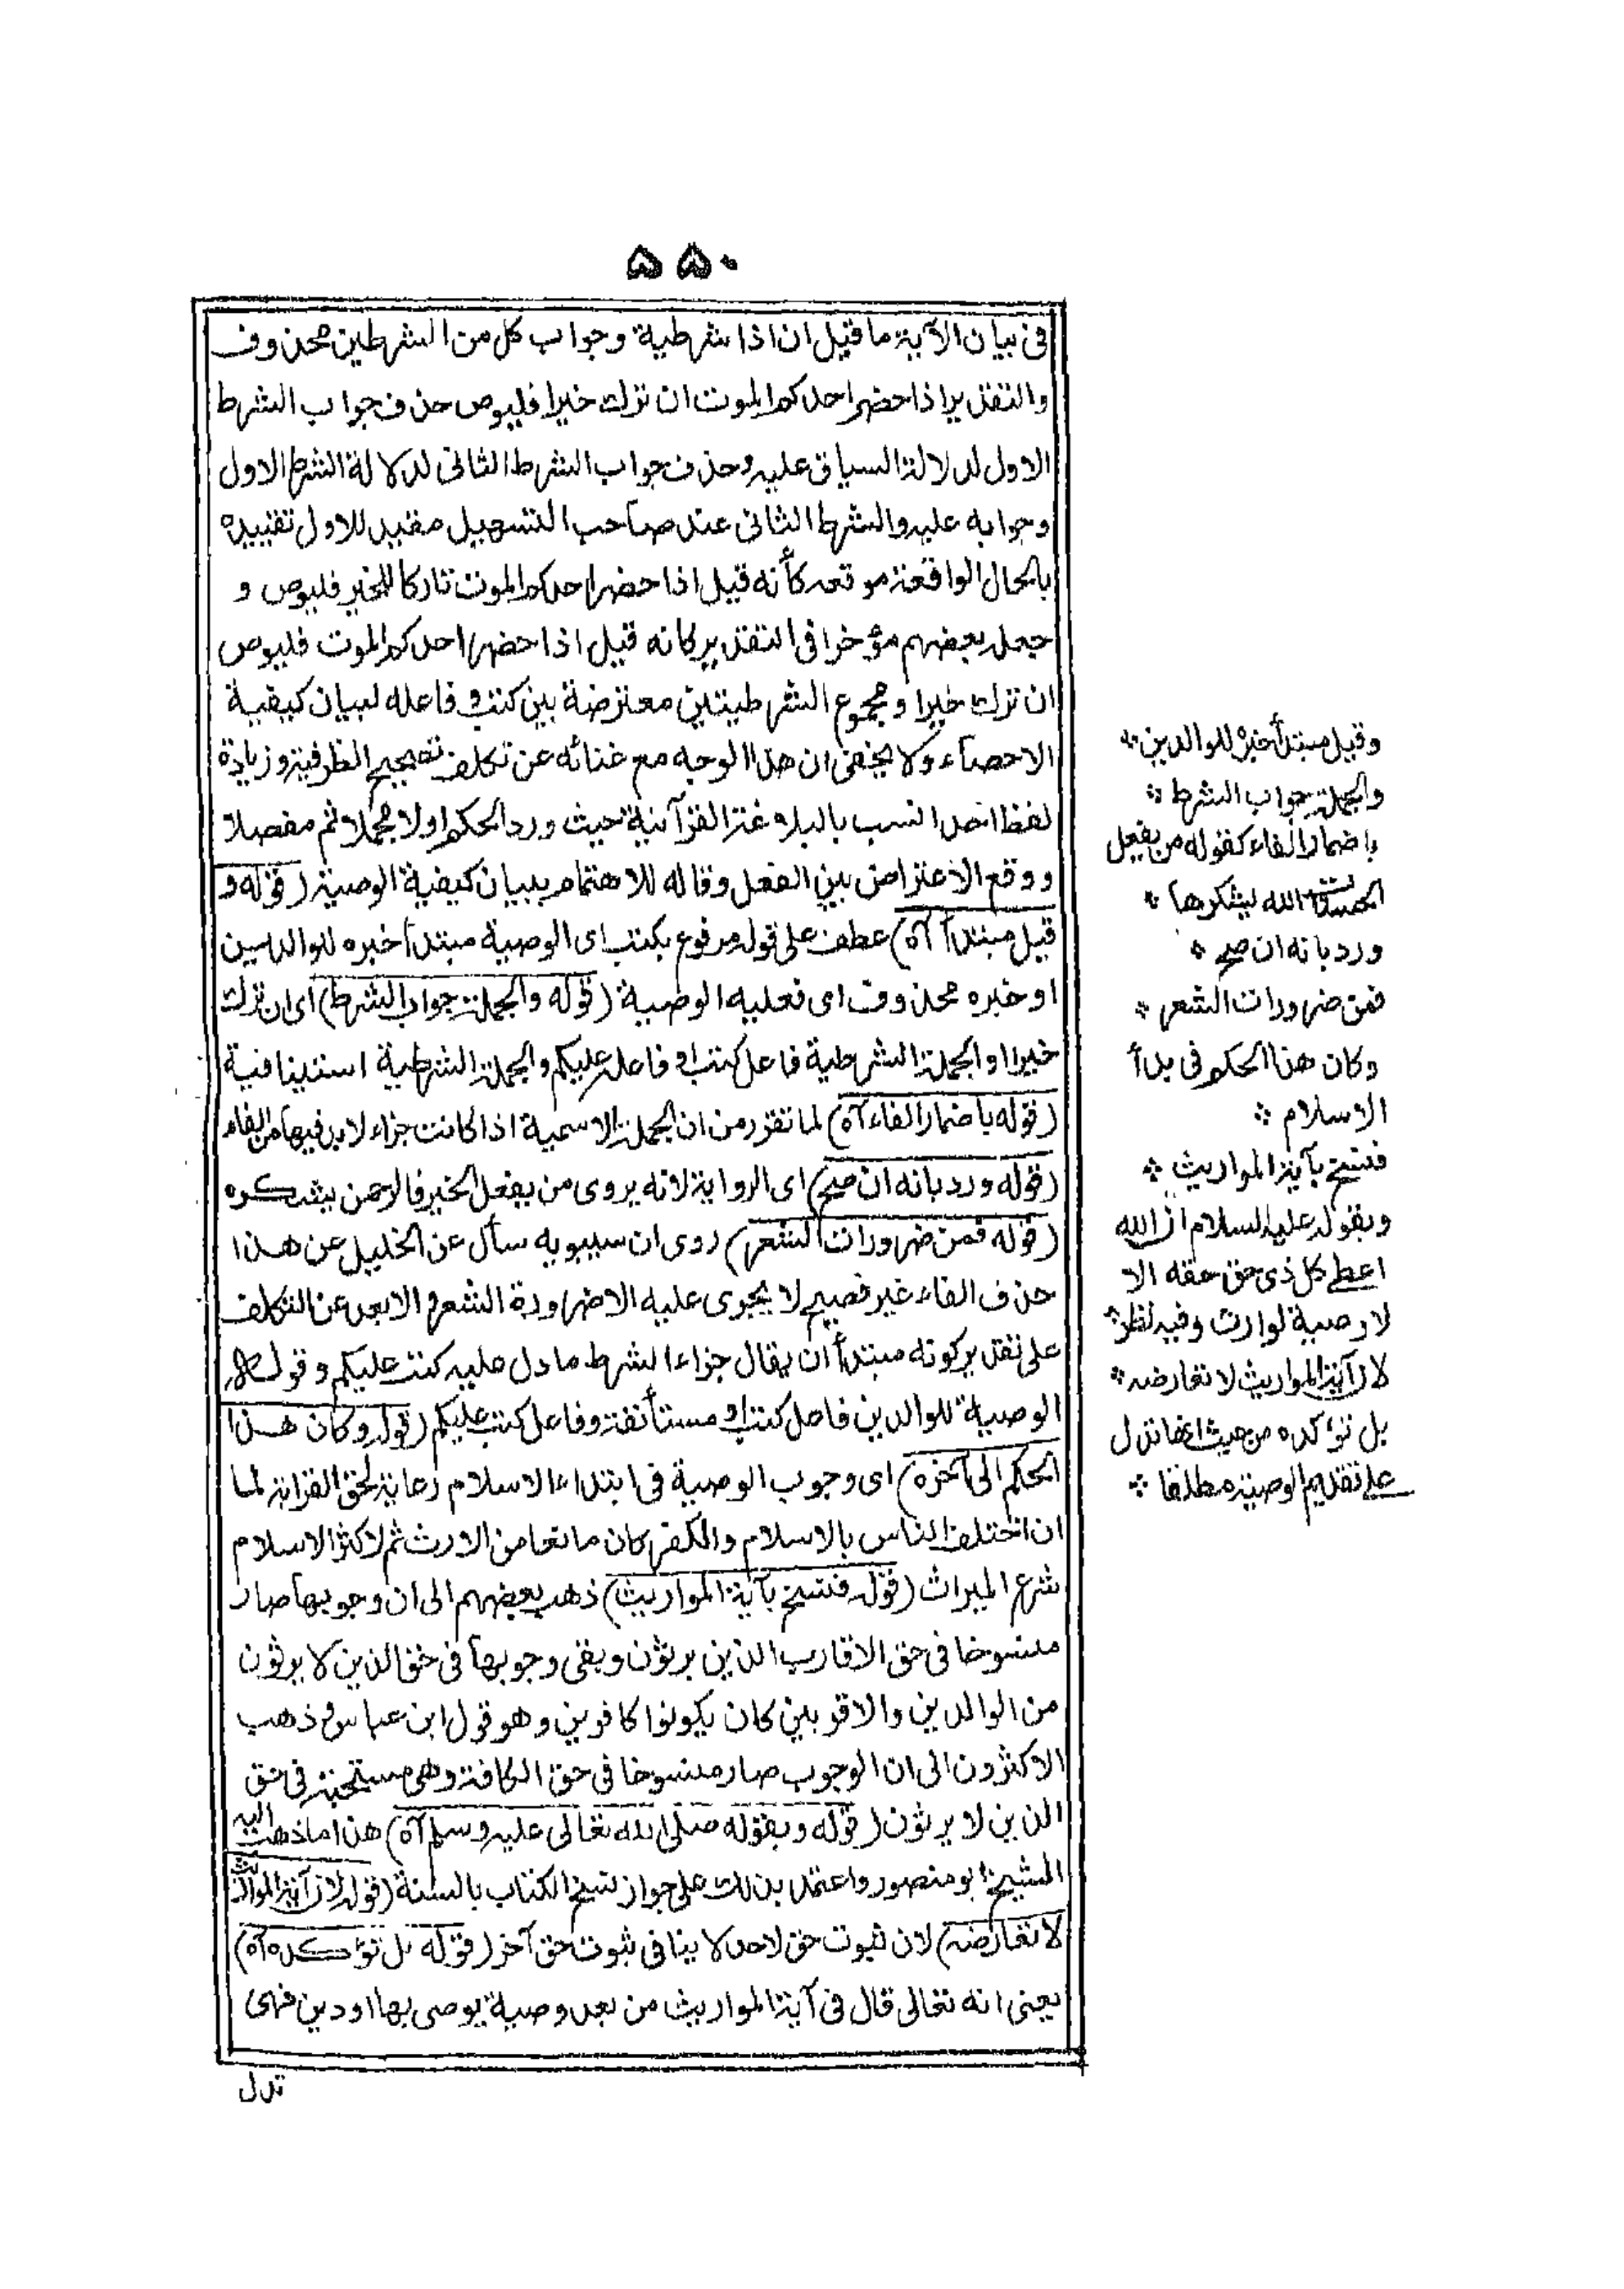 ۵۵۰
فى بيان الآية ما قيل ان اذا شرطية وجواب كل من الشرطين محذوف
والتقدير اذا حضر احدكم الموت ان ترك خيرا فليوص حذف جواب الشرط
الاول لدلالة السياق عليه وحذف جواب الشرط الثانى لدلالة الشرط الاول
وجوابه عليه والشرط الثانى عند صاحب التسهيل مقيد للاول تقييده
بالحال الواقعة موقعه كأنه قيل اذا حضر احدكم الموت تاركا للخير فليوص و
جعل بعضهم مؤخرا فى التقدير كانه قيل اذا حضر احدكم الموت فليوص
ان ترك خيرا ومجموع الشرطيتين معترضة بين كتب وفاعله لبيان كيفية
الايصاء ولا يخفى ان هذا الوجه مع غنائه عن تكلف تصحيح الظرفية وزيادة
لفظ احد انسب بالبلاغة القرآنية حيث ورد الحكم اولا مجملا ثم مفصلا
ووقع الاعتراض بين الفعل وفاعله للاهتمام ببيان كيفية الوصية (قوله و
قيل مبتدأ آه) عطف على قوله مرفوع بكتب اى الوصية مبتدأ خبره للوالدين
او خبره محذوف اى فعليه الوصية (قوله والجملة جواب الشرط) اى ان ترك
خيرا والجملة الشرطية فاعل كتب او فاعله عليكم والجملة الشرطية استينافية
(قوله باضمار الفاء آه) لما تقرر من ان الجملة الاسمية اذا كانت جزاء لا بد فيها من الفاء
(قوله ورد بانه ان صح) اى الرواية لانه يروى من يفعل الخير فالرحمن يشكره
(قوله فمن ضرورات الشعر) روى ان سيبويه سأل عن الخليل عن هذا
حذف الفاء غير فصيح لا يجرى عليه الا ضرورة الشعر والابعد عن التكلف
على تقدير كونه مبتدأ ان يقال جزاء الشرط ما دل عليه كتب عليكم وقوله
الوصية للوالدين فاعل كتب او مستأنفة وفاعل كتب عليكم (قوله وكان هذا
الحكم الى آخره) اى وجوب الوصية فى ابتداء الاسلام رعاية لحق القرابة لما
ان اختلف الناس بالاسلام والكفر كان مانعا من الارث ثم لما كثر الاسلام
شرع الميراث (قوله فنسخ بآية المواريث) ذهب بعضهم الى ان وجوبها صار
منسوخا فى حق الاقارب الذين يرثون وبقى وجوبها فى حق الذين لا يرثون
من الوالدين والاقربين كان يكونوا كافرين وهو قول ابن عباس وذهب
الاكثرون الى ان الوجوب صار منسوخا فى حق الكافة وهى مستحبة فى حق
الذين لا يرثون (قوله وبقوله صلى الله تعالى عليه وسلم آه) هذا ما ذهب اليه
الشيخ ابو منصور واعتمد بذلك على جواز نسخ الكتاب بالسنة (قوله لان آية المواريث
لا تعارضه) لان ثبوت حق لاحد لا ينافى ثبوت حق آخر (قوله بل تؤكده آه)
يعنى انه تعالى قال فى آية المواريث من بعد وصية يوصى بها او دين فهى
تدل
وقيل مبتدأ خبره للوالدين
والجملة جواب الشرط
باضمار الفاء كقوله من يفعل
الحسنات الله يشكرها
ورد بانه ان صح
فمن ضرورات الشعر
وكان هذا الحكم فى بدأ
الاسلام
فنسخ بآية المواريث
وبقوله عليه السلام ان الله
اعطى كل ذى حق حقه الا
لا وصية لوارث وفيه نظر
لان آية المواريث لا تعارضه
بل تؤكده من حيث انها تدل
على تقديم الوصية مطلقا